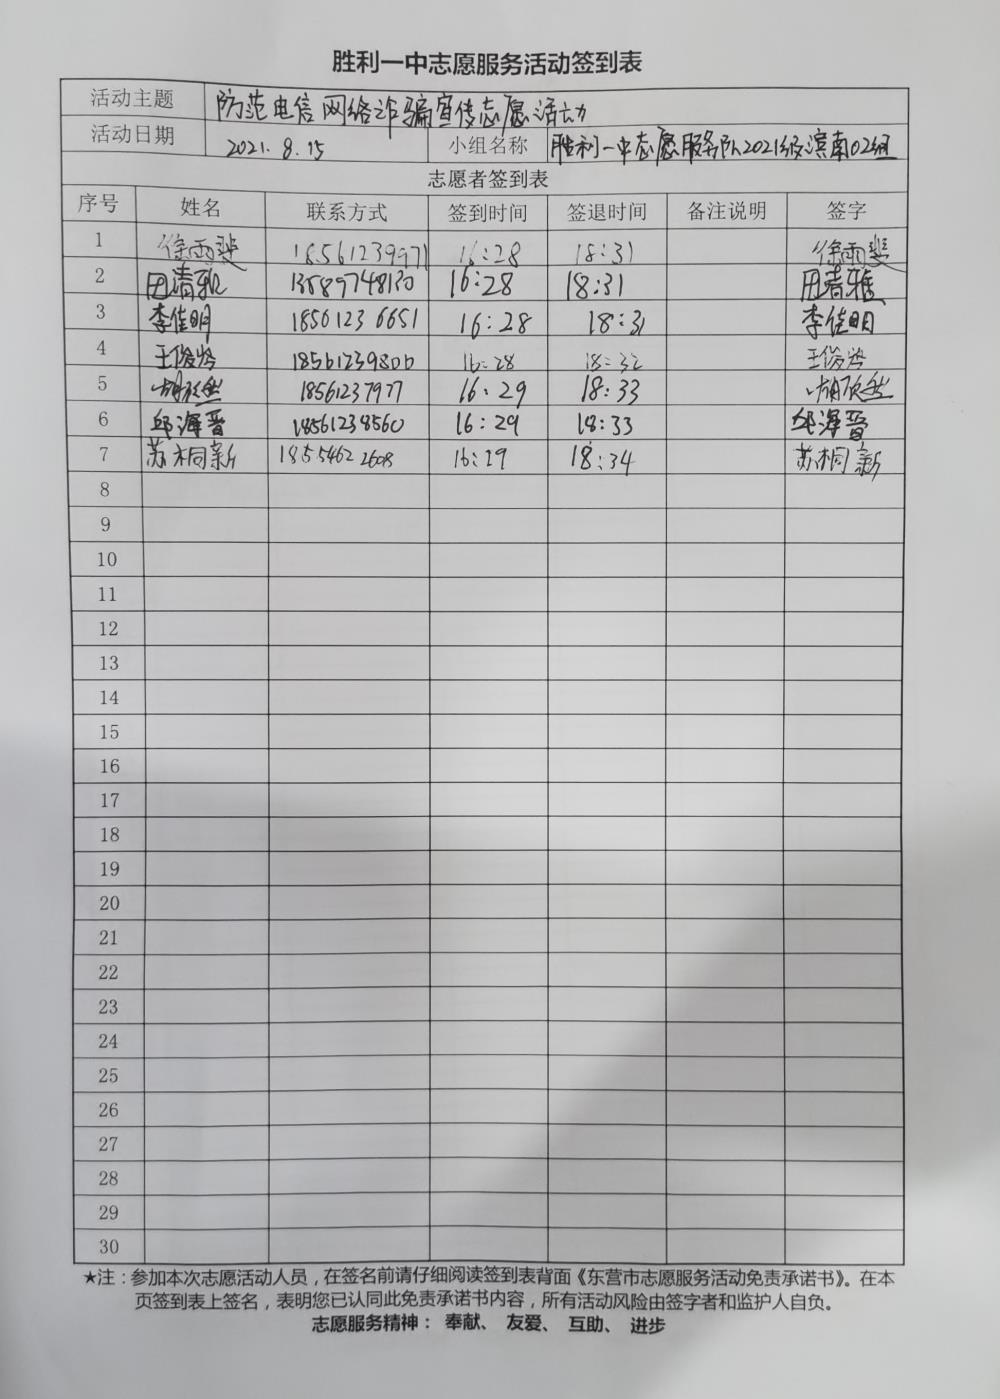 胜利一中志愿服务活动签到表
活动主题 防范电信网络诈骗宣传志愿活动
活动日期 2021.8.15 小组名称 胜利一中志愿服务队2021级滨南02组
志愿者签到表
序号 姓名 联系方式 签到时间 签退时间 备注说明 签字
1 徐雨斐 18561239971 16:28 18:31 徐雨斐
2 田清雅 13589748130 16:28 18:31 田清雅
3 李佳明 18561236651 16:28 18:31 李佳明
4 王俊 18561239800 16:28 18:32 王俊
5 胡欣然 18561237977 16:29 18:33 胡欣然
6 邱泽晋 18561238560 16:29 18:33 邱泽晋
7 苏桐新 18554622608 16:29 18:34 苏桐新
8
9
10
11
12
13
14
15
16
17
18
19
20
21
22
23
24
25
26
27
28
29
30
★注：参加本次志愿活动人员，在签名前请仔细阅读签到表背面《东营市志愿服务活动免责承诺书》。在本
页签到表上签名，表明您已认同此免责承诺书内容，所有活动风险由签字者和监护人自负。
志愿服务精神： 奉献、 友爱、 互助、 进步